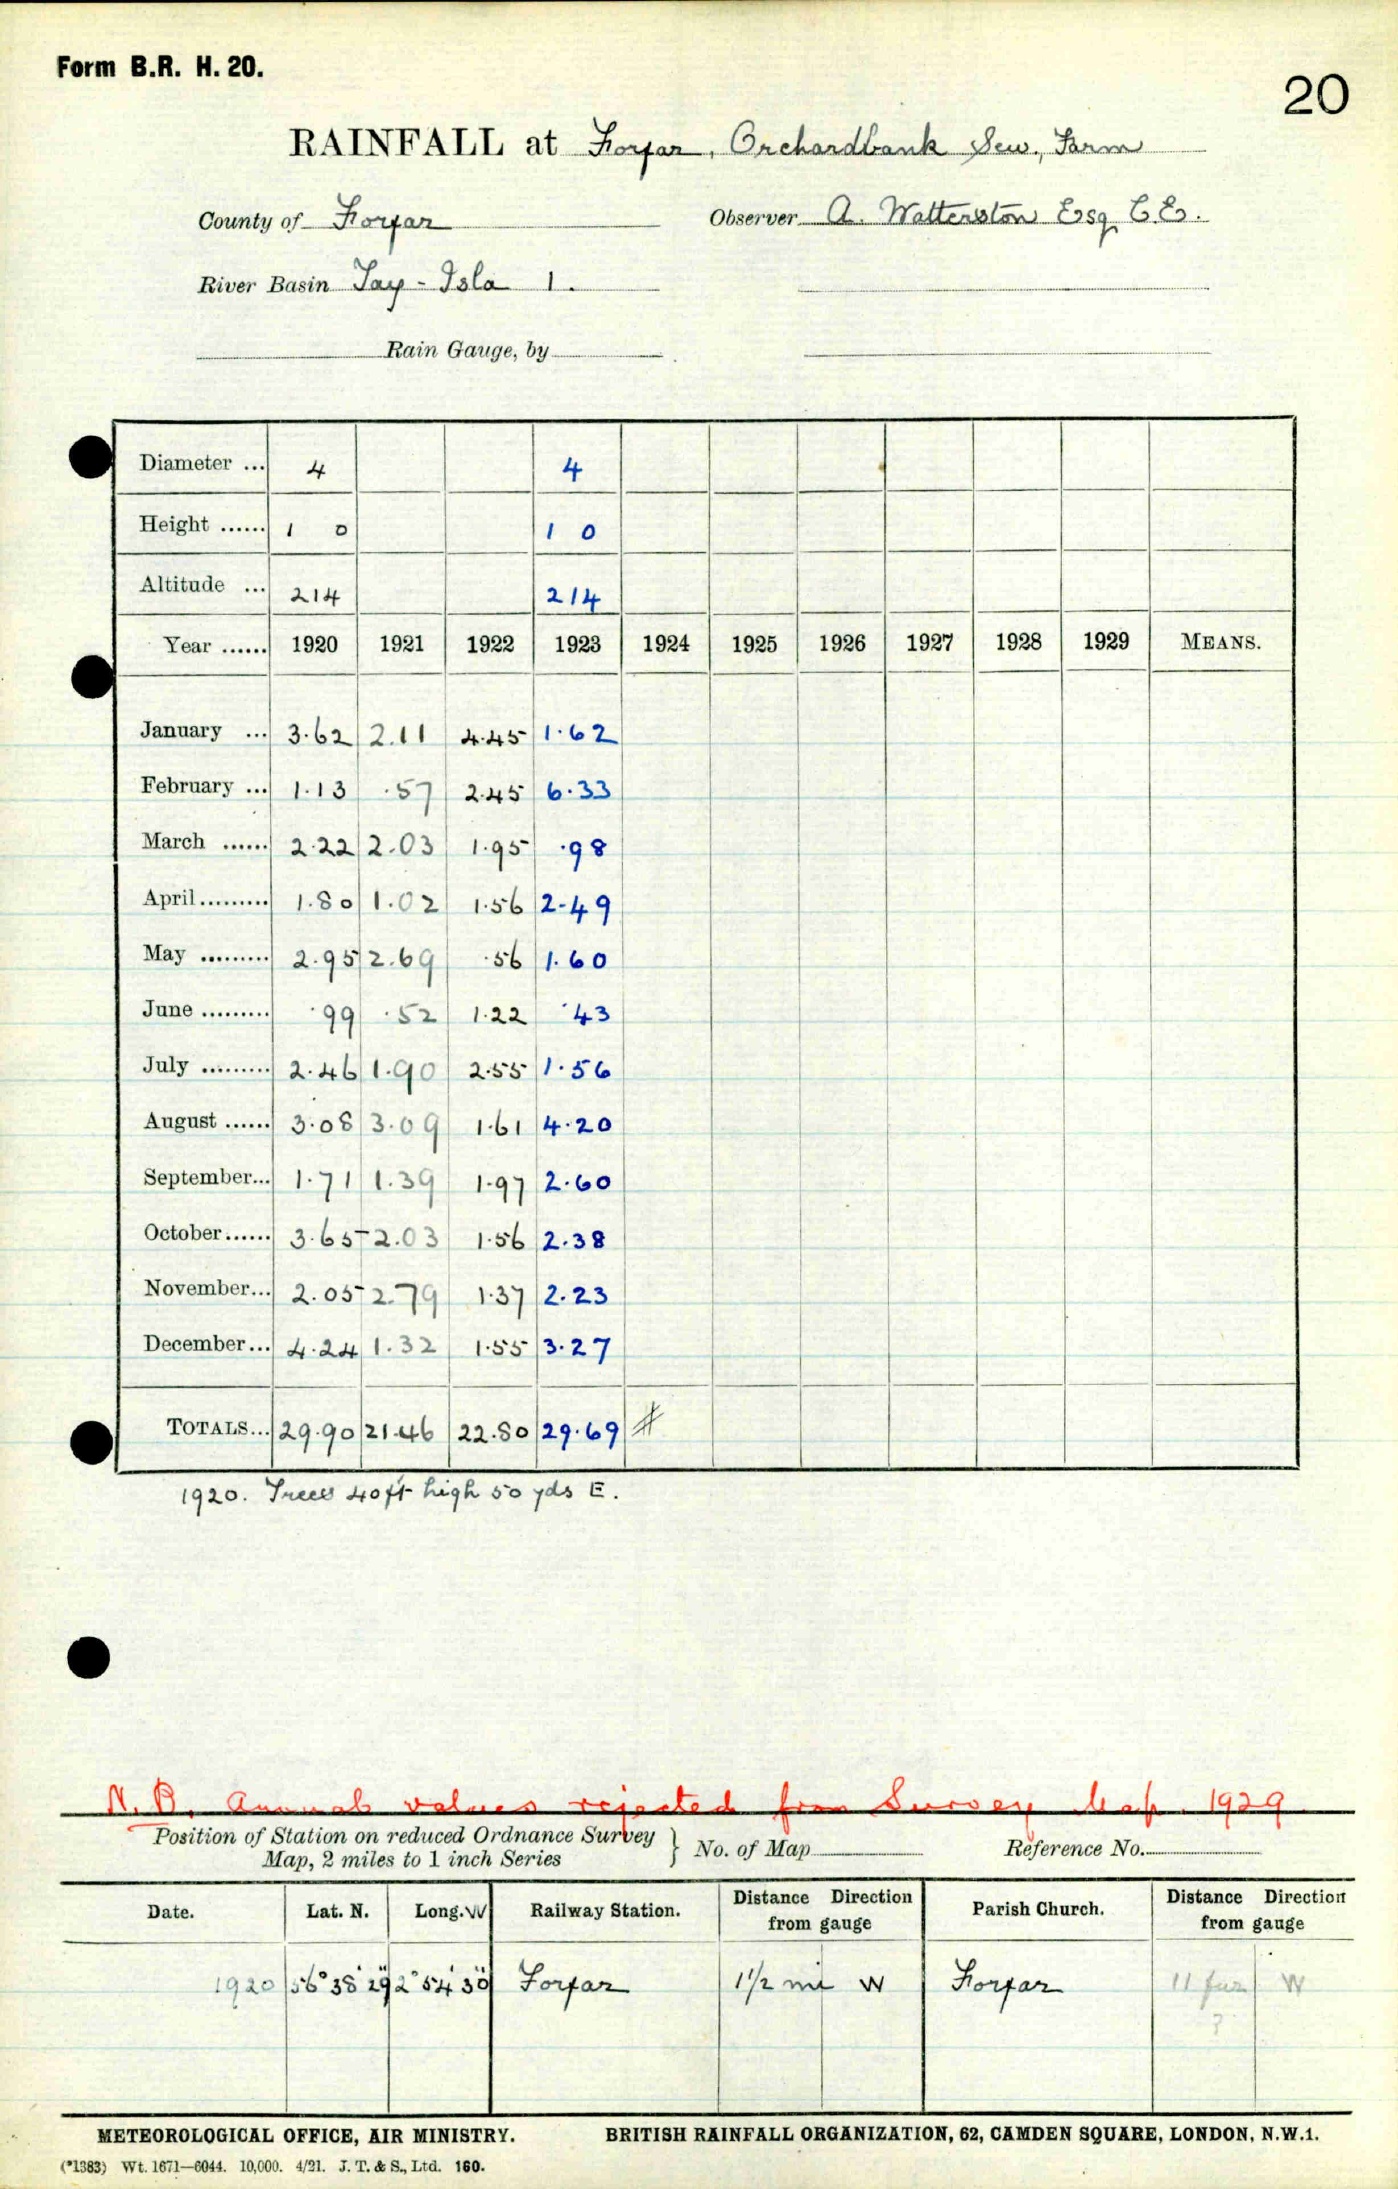 Form B.R. H. 20.
20
RAINFALL at Forfar, Orchardbank Sew. Farm
County of Forfar Observer A. Watterston Esq C.E.
River Basin Tay - Isla 1.
Rain Gauge, by
Diameter ... 4 4
Height ...... 1 0 1 0
Altitude ... 214 214
Year ...... 1920 1921 1922 1923 1924 1925 1926 1927 1928 1929 MEANS.
January ... 3.62 2.11 4.45 1.62
February ... 1.13 .57 2.45 6.33
March ...... 2.22 2.03 1.95 .98
April ......... 1.80 1.02 1.56 2.49
May ......... 2.95 2.69 .56 1.60
June ......... .99 .52 1.22 .43
July ......... 2.46 1.90 2.55 1.56
August ...... 3.08 3.09 1.61 4.20
September... 1.71 1.39 1.97 2.60
October ...... 3.65 2.03 1.56 2.38
November... 2.05 2.79 1.37 2.23
December... 4.24 1.32 1.55 3.27
TOTALS... 29.90 21.46 22.80 29.69 #
1920. Trees 40ft high 50 yds E.
N.B. Annual values rejected from Survey Map. 1929
Position of Station on reduced Ordnance Survey
Map, 2 miles to 1 inch Series } No. of Map Reference No.
Date. Lat. N. Long. W Railway Station. Distance Direction from gauge Parish Church. Distance Direction from gauge
1920 56° 38' 29" 2° 54' 30" Forfar 1 1/2 mi W Forfar 11 fur W
?
METEOROLOGICAL OFFICE, AIR MINISTRY. BRITISH RAINFALL ORGANIZATION, 62, CAMDEN SQUARE, LONDON, N.W.1.
(*1383) Wt. 1671—6044. 10,000. 4/21. J. T. & S., Ltd. 160.